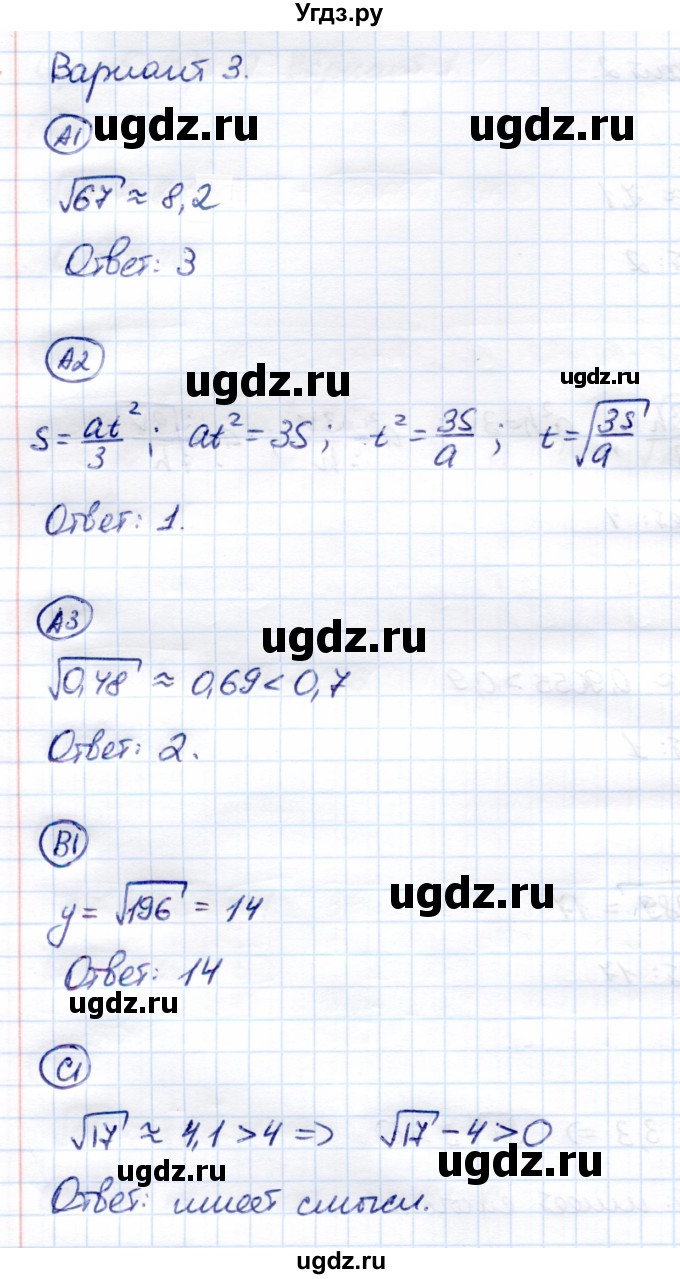 Угдз.ру
Вариант 3.
А1
ugdz.ru ugdz.ru
√67 ≈ 8,2
Ответ: 3
А2
ugdz.ru ugdz.ru
S = at²/3 ; at² = 3S ; t² = 3S/a ; t = √(3s/a)
Ответ: 1.
А3
ugdz.ru
√0,48 ≈ 0,69 < 0,7
Ответ: 2.
В1
ugdz.ru
y = √196 = 14
Ответ: 14
ugdz.ru
С1
√17 ≈ 4,1 > 4 => √17 - 4 > 0
ugdz.ru ugdz.ru
Ответ: имеет смысл.
ugdz.ru